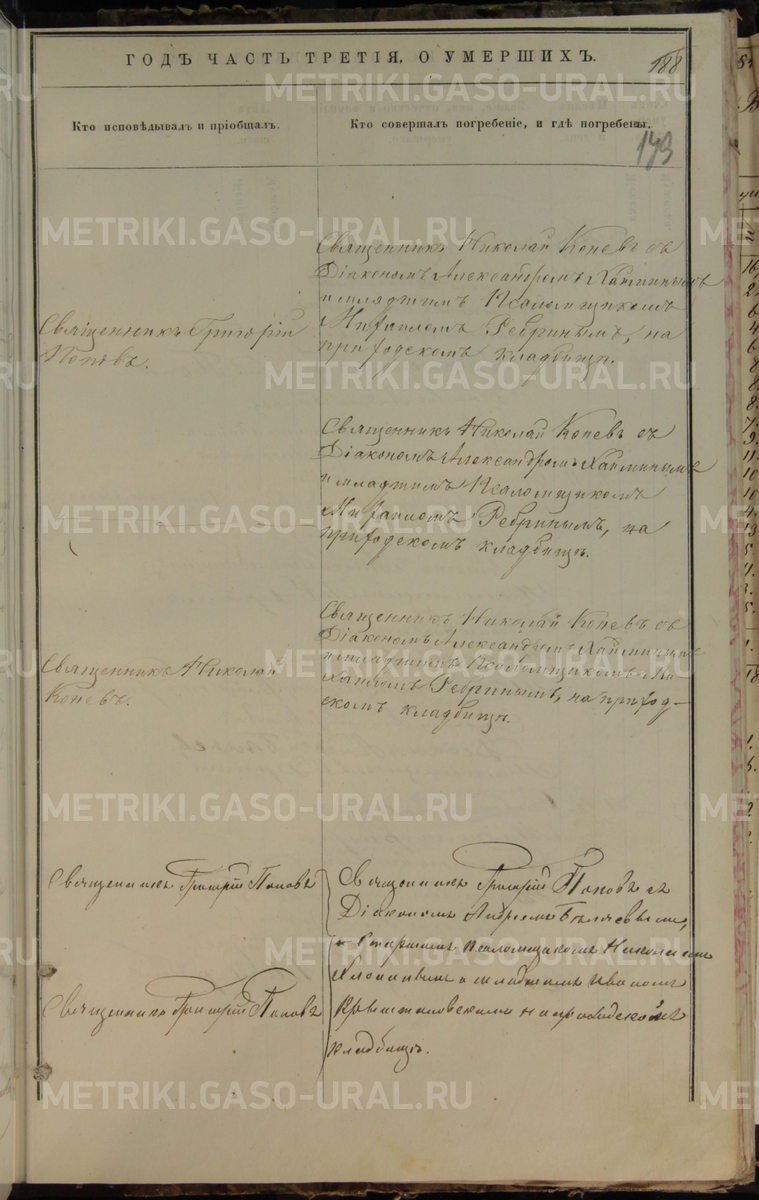 ГОДЪ ЧАСТЬ ТРЕТІЯ, О УМЕРШИХЪ.
188
Кто исповѣдывалъ и пріобщалъ.
Кто совершалъ погребеніе, и гдѣ погребены.
179
Священникъ Григорій
Поповъ.
Священникъ Николай Коневъ съ
Діакономъ Александромъ Хайминымъ
и младшимъ Псаломщикомъ
Михаиломъ Ребринымъ, на
приходскомъ кладбищѣ.
Священникъ Николай Коневъ съ
Діакономъ Александромъ Хайминымъ
и младшимъ Псаломщикомъ
Михаиломъ Ребринымъ, на
приходскомъ кладбищѣ.
Священникъ Николай
Коневъ.
Священникъ Николай Коневъ съ
Діакономъ Александромъ Хайминымъ
и младшимъ Псаломщикомъ Ми
хаиломъ Ребринымъ, на приход-
скомъ кладбищѣ.
Священникъ Григорій Поповъ
Священникъ Григорій Поповъ
Священникъ Григорій Поповъ съ
Діакономъ Андреемъ Бѣляевымъ,
и старшимъ псаломщикомъ Николаемъ
и младшимъ Иваномъ
на приходскомъ
кладбищѣ.
METRIKI.GASO-URAL.RU